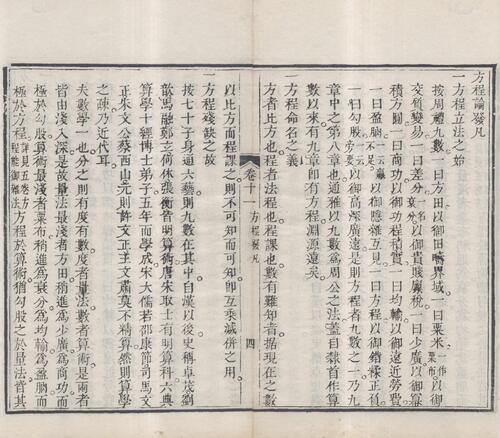 方程論發凡
一方程立法之始
按周禮九數一曰方田以御田疇界域一曰粟米一作粟布以御
交質變易一曰差分一名衰分以御貴賤廩稅一曰少廣以御冪
積方圓一曰商功以御功程積實一曰均輸以御遠近勞費
一曰盈朒一云盈不足以御隱雜互見一曰方程以御錯糅正負
一曰勾股以御高深廣遠是則方程者九數之一乃九
章中之第八章也通雅以九數爲周公之法蓋自隸首作算
數以來有九章即有方程淵源遠矣
一方程命名之義
方者比方也程者法程也程課也數有難知者据現在之數
卷十一 方程發凡 四
以比方而程課之則不可知而可知即互乘減併之用
一方程殘缺之故
按七十子身通六藝則九數在其中自漢以後史稱卓茂劉
歆馬融鄭玄何休張衡皆明算術唐宋取士有明算科六典
算學十經博士弟子五年而學成宋大儒若邵康節司馬文
正朱文公蔡西山元則許文正王文肅莫不精算然則算學
之疎乃近代耳
夫數學一也分之則有度有數度者量法數者算術是兩者
皆由淺入深是故量法最淺者方田稍進爲少廣爲商功而
極於勾股算術最淺者粟布稍進爲衰分爲均輸爲盈朒而
極於方程詳見五卷方程能御雜法方程於算術猶勾股之於量法皆其